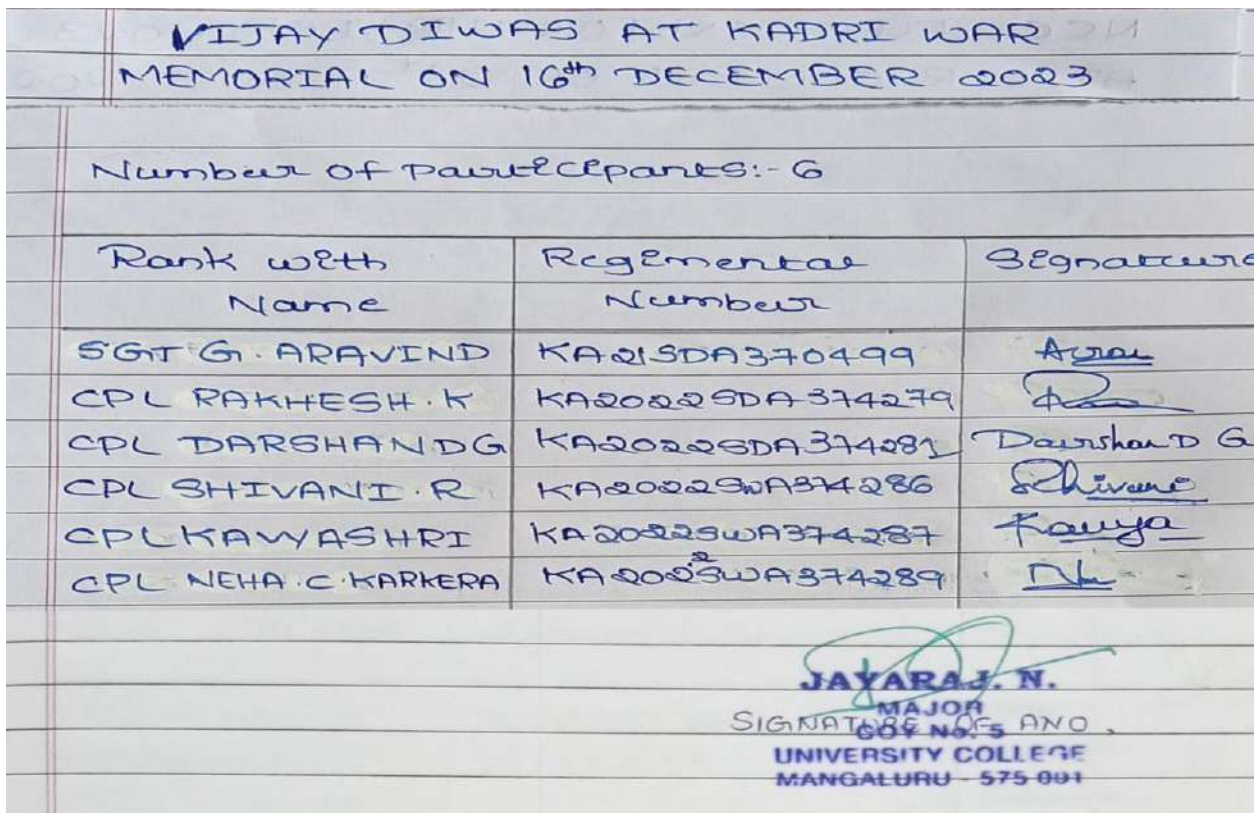 VIJAY DIWAS AT KADRI WAR
MEMORIAL ON 16th DECEMBER 2023
Number of Participants:- 6
Rank with Name Regimental Number Signature
SGT G. ARAVIND KA21SDA370499
CPL RAKHESH.K KA2022SDA374279
CPL DARSHAN D G KA2022SDA374281 Darshan D G
CPL SHIVANI.R. KA2022SWA374286 Shivani
CPL KAVYASHRI KA2022SWA374287 Kavya
CPL NEHA.C.KARKERA KA2022SWA374289
JAYARAJ. N.
MAJOR
SIGNATURE OF ANO.
COY No. 5
UNIVERSITY COLLEGE
MANGALURU - 575 001